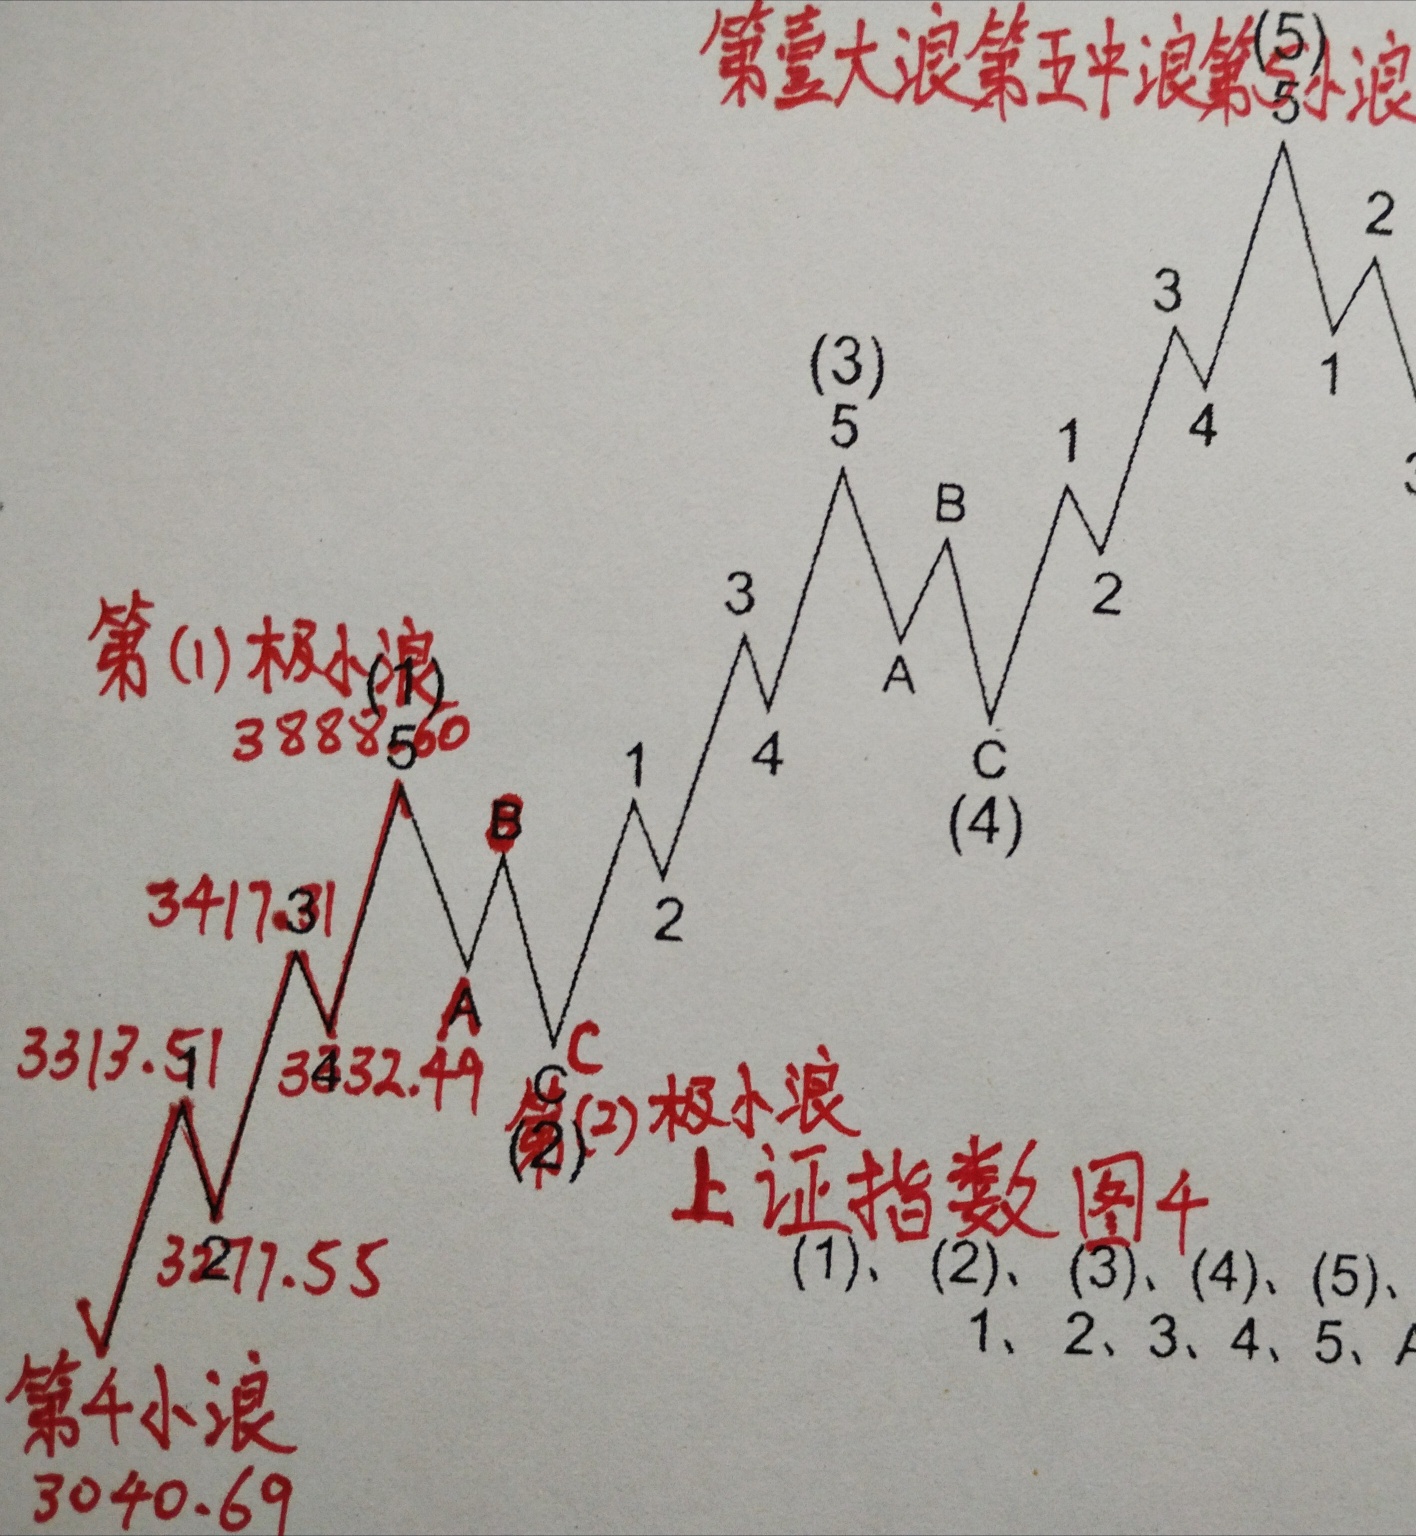 第壹大浪第五中浪第5小浪
(5)
5
2
3
1
4
(3)
5
1
B
2
3
A
4
C
(4)
第(1)极小浪
(1)
3888.60
5
1
B
2
3417.31
3
A
3313.51
1
3332.49
4
C
C
第(2)极小浪
(2)
上证指数图4
3277.55
2
(1)、(2)、(3)、(4)、(5)、
1、2、3、4、5、A
第4小浪
3040.69